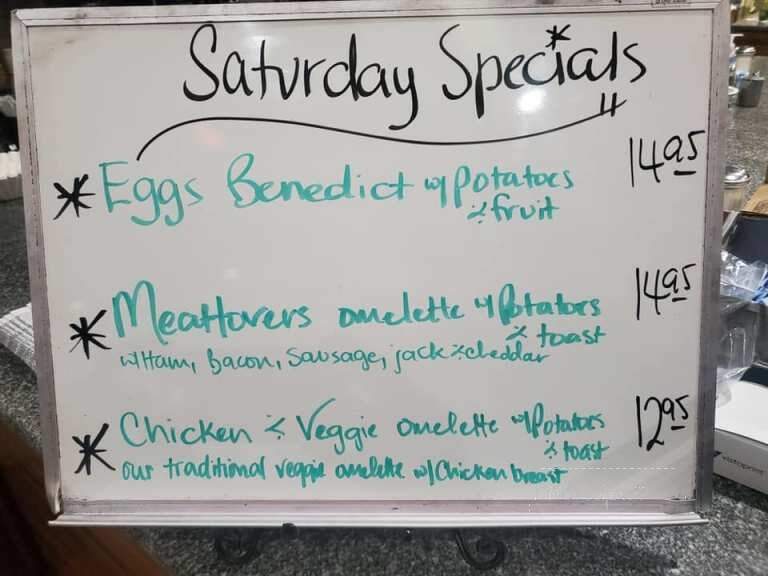 Saturday Specials
* Eggs Benedict w/ Potatoes 14.95
& fruit
* Meatlovers omelette w/ Potatoes 14.95
& toast
w/ Ham, Bacon, Sausage, jack & cheddar
* Chicken & Veggie omelette w/ Potatoes 12.95
& toast
our traditional veggie omelette w/ Chicken breast
vistaprint